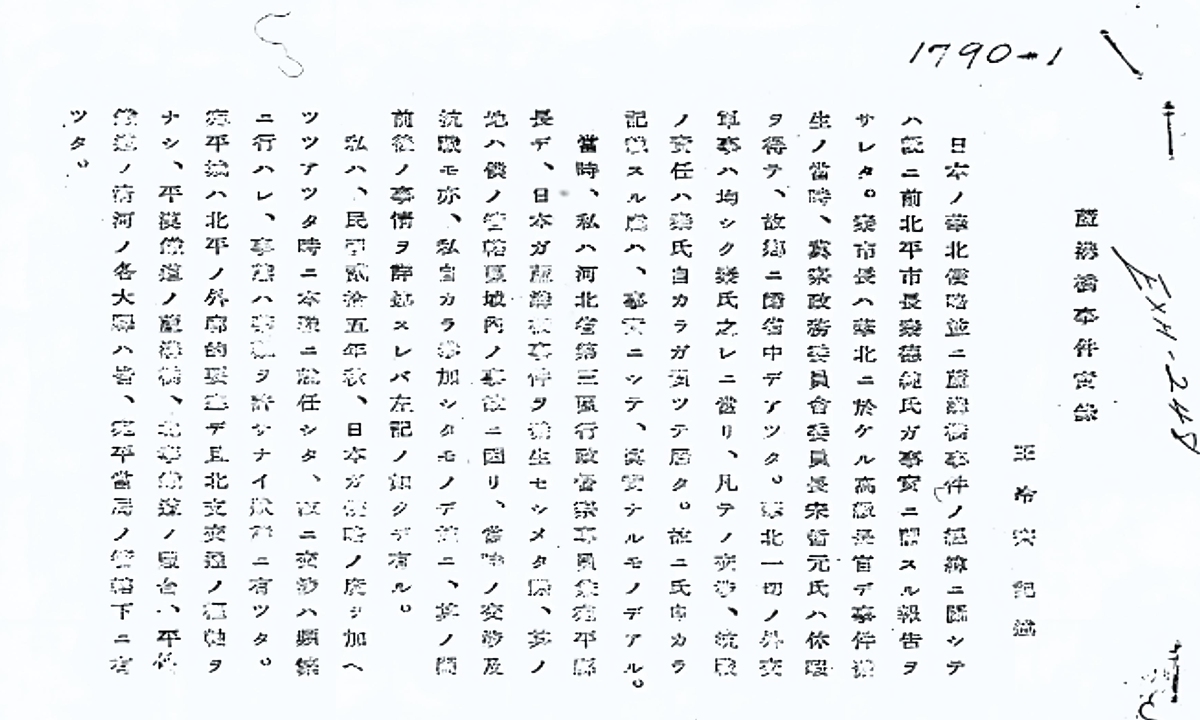 1790-1
EXH-248
蘆溝橋事件實錄
王冷齋 紀述
日本ノ華北侵略並ニ蘆溝橋事件ノ經緯ニ關シテ
ハ既ニ前北平市長秦德純氏ガ事實ニ關スル報告ヲ
サレタ。秦市長ハ華北ニ於ケル高級長官デ事件發
生ノ當時、冀察政務委員會委員長宋哲元氏ハ休暇
ヲ得テ、故鄉ニ歸省中デアツタ。華北一切ノ外交
軍事ハ均シク秦氏之レニ當リ、凡テノ交涉、抗戰
ノ責任ハ秦氏自カラガ負ツテ居タ。故ニ氏自カラ
記載スル處ハ、事實ニシテ、眞實ナルモノデアル。
當時、私ハ河北省第三區行政督察專員兼宛平縣
長デ、日本ガ蘆溝橋事件ヲ發生セシメタ際、其ノ
地ハ僕ノ管轄區域內ノ事故ニ因リ、當時ノ交涉及
抗戰モ亦、私自カラ參加シタモノデ故ニ、其ノ前
前後ノ事情ヲ詳述スレバ左記ノ如クデ有ル。
私ハ、民國貳拾五年秋、日本ガ侵略ノ度ヲ加ヘ
ツツアツタ時ニ本職ニ就任シタ、故ニ交涉ハ頻繁
ニ行ハレ、事態ハ樂觀ヲ許サナイ狀態ニ有ツタ。
宛平城ハ北平ノ外廓的要塞デ且北支交通ノ樞軸ヲ
ナシ、平漢鐵道ノ蘆溝橋、北寧鐵道ノ豐台、平綏
鐵道ノ清河ノ各大驛ハ皆、宛平當局ノ管轄下ニ有
ツタ。